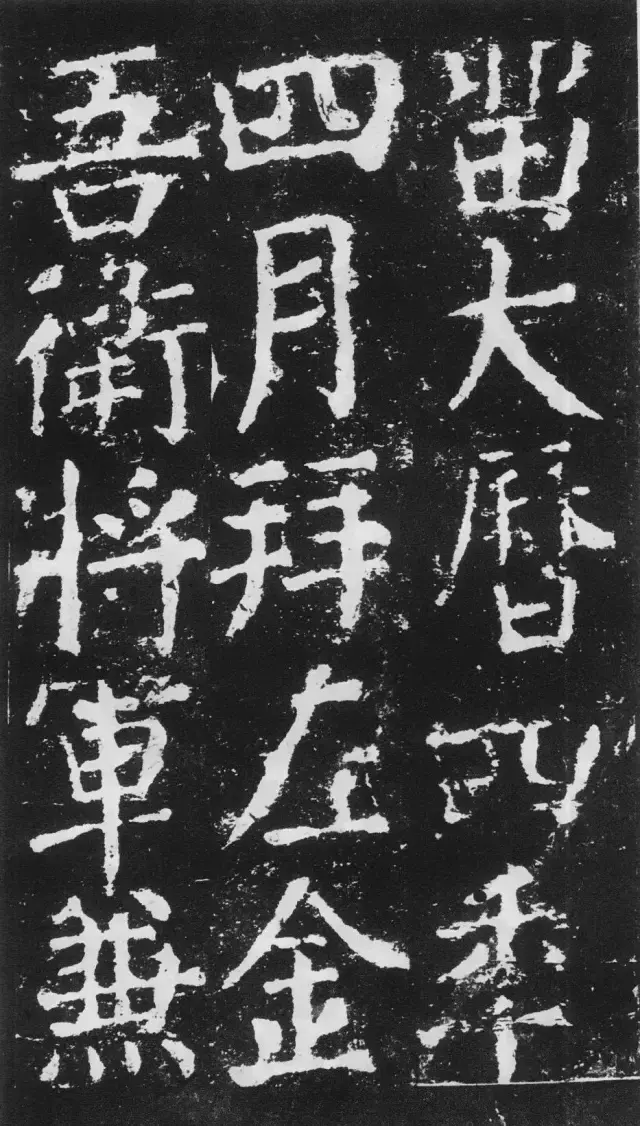 畱大曆四秊
四月拜左金
吾衛將軍兼